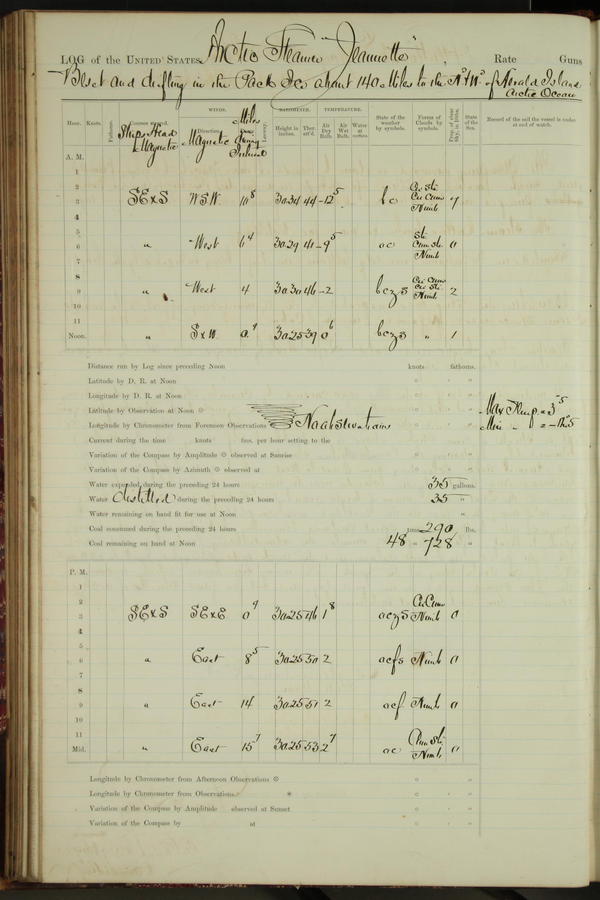 LOG of the UNITED STATES Arctic Steamer "Jeannette", Rate Guns
Beset and drifting in the Pack Ice about 140 Miles to the Nd & Wd of Herald Island
Arctic Ocean
Hour. Knots. Fathoms. Ships Head Magnetic WINDS. Direction. Magnetic Miles during Interval Leeway. BAROMETER. Height in inches. Ther. att'd. TEMPERATURE. Air Dry Bulb. Air Wet Bulb. Water at surface. State of the weather by symbols. Forms of Clouds by symbols. Prop. of clear Sky, in 10ths. State of the Sea. Record of the sail the vessel is under at end of watch.
A. M.
1
2
3 SExS W.S.W. 10 8 30.34 44 -12 5 bc Cir Sti Cir Cum Nimb 7
4
5
6 " West 6 4 30.29 41 -9 5 oc Sti Cum Sti Nimb 0
7
8
9 " West 4 30.30 46 -2 bczs Cir Cum Cir Sti Nimb 2
10
11
Noon. " SxW 30.25 39 0 6 bczs " 1
Distance run by Log since preceding Noon knots fathoms.
Latitude by D. R. at Noon ° ' "
Longitude by D. R. at Noon ° ' "
Latitude by Observation at Noon ° ' " Max Temp. = 3° 5
Longitude by Chronometer from Forenoon Observations No observations ° ' " Min " = -12° 5
Current during the time knots fms. per hour setting to the
Variation of the Compass by Amplitude observed at Sunrise ° ' "
Variation of the Compass by Azimuth observed at ° ' "
Water expended during the preceding 24 hours 35 gallons.
Water distilled during the preceding 24 hours 35 "
Water remaining on hand fit for use at Noon "
Coal consumed during the preceding 24 hours tons 290 lbs.
Coal remaining on hand at Noon 48 " 728 "
P. M.
1
2
3 SExS SExE 0 9 30.25 46 1 8 oczs Cir Cum Nimb 0
4
5
6 " East 8 5 30.25 50 2 ocfs Nimb 0
7
8
9 " East 14 30.25 51 2 ocf Nimb 0
10
11
Mid. " East 15 7 30.25 53 2 7 oc Cum Sti Nimb 0
Longitude by Chronometer from Afternoon Observations ° ' "
Longitude by Chronometer from Observations * ° ' "
Variation of the Compass by Amplitude observed at Sunset ° ' "
Variation of the Compass by at ° ' "